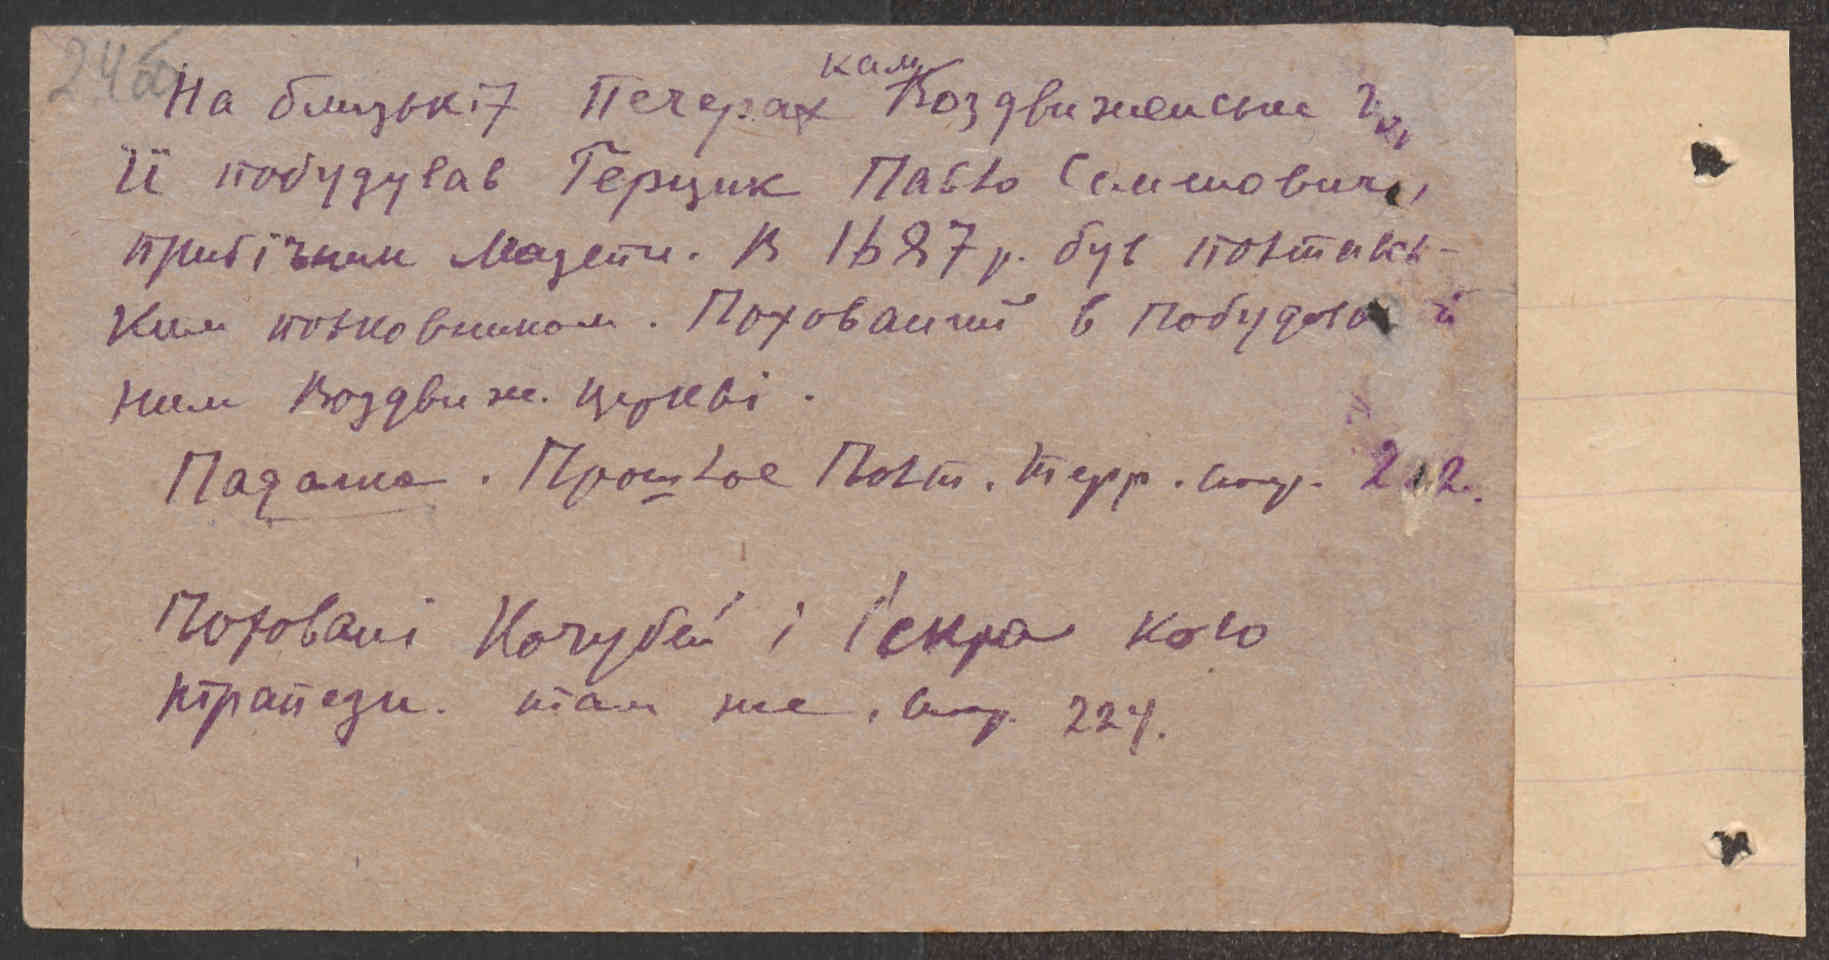 24
кам.
На близькіх Печерах Воздвиженська
Її побудував Герцик Павло Семенович,
прибічник Мазепи. В 1687 р. був полтавсь-
ким полковником. Похований в побудова
ним Воздвиж. церкві.
Падалка. Прошлое Полт. терр. стр. 212.
Поховані Кочубей і Іскра коло
трапези. там же, стр. 224.